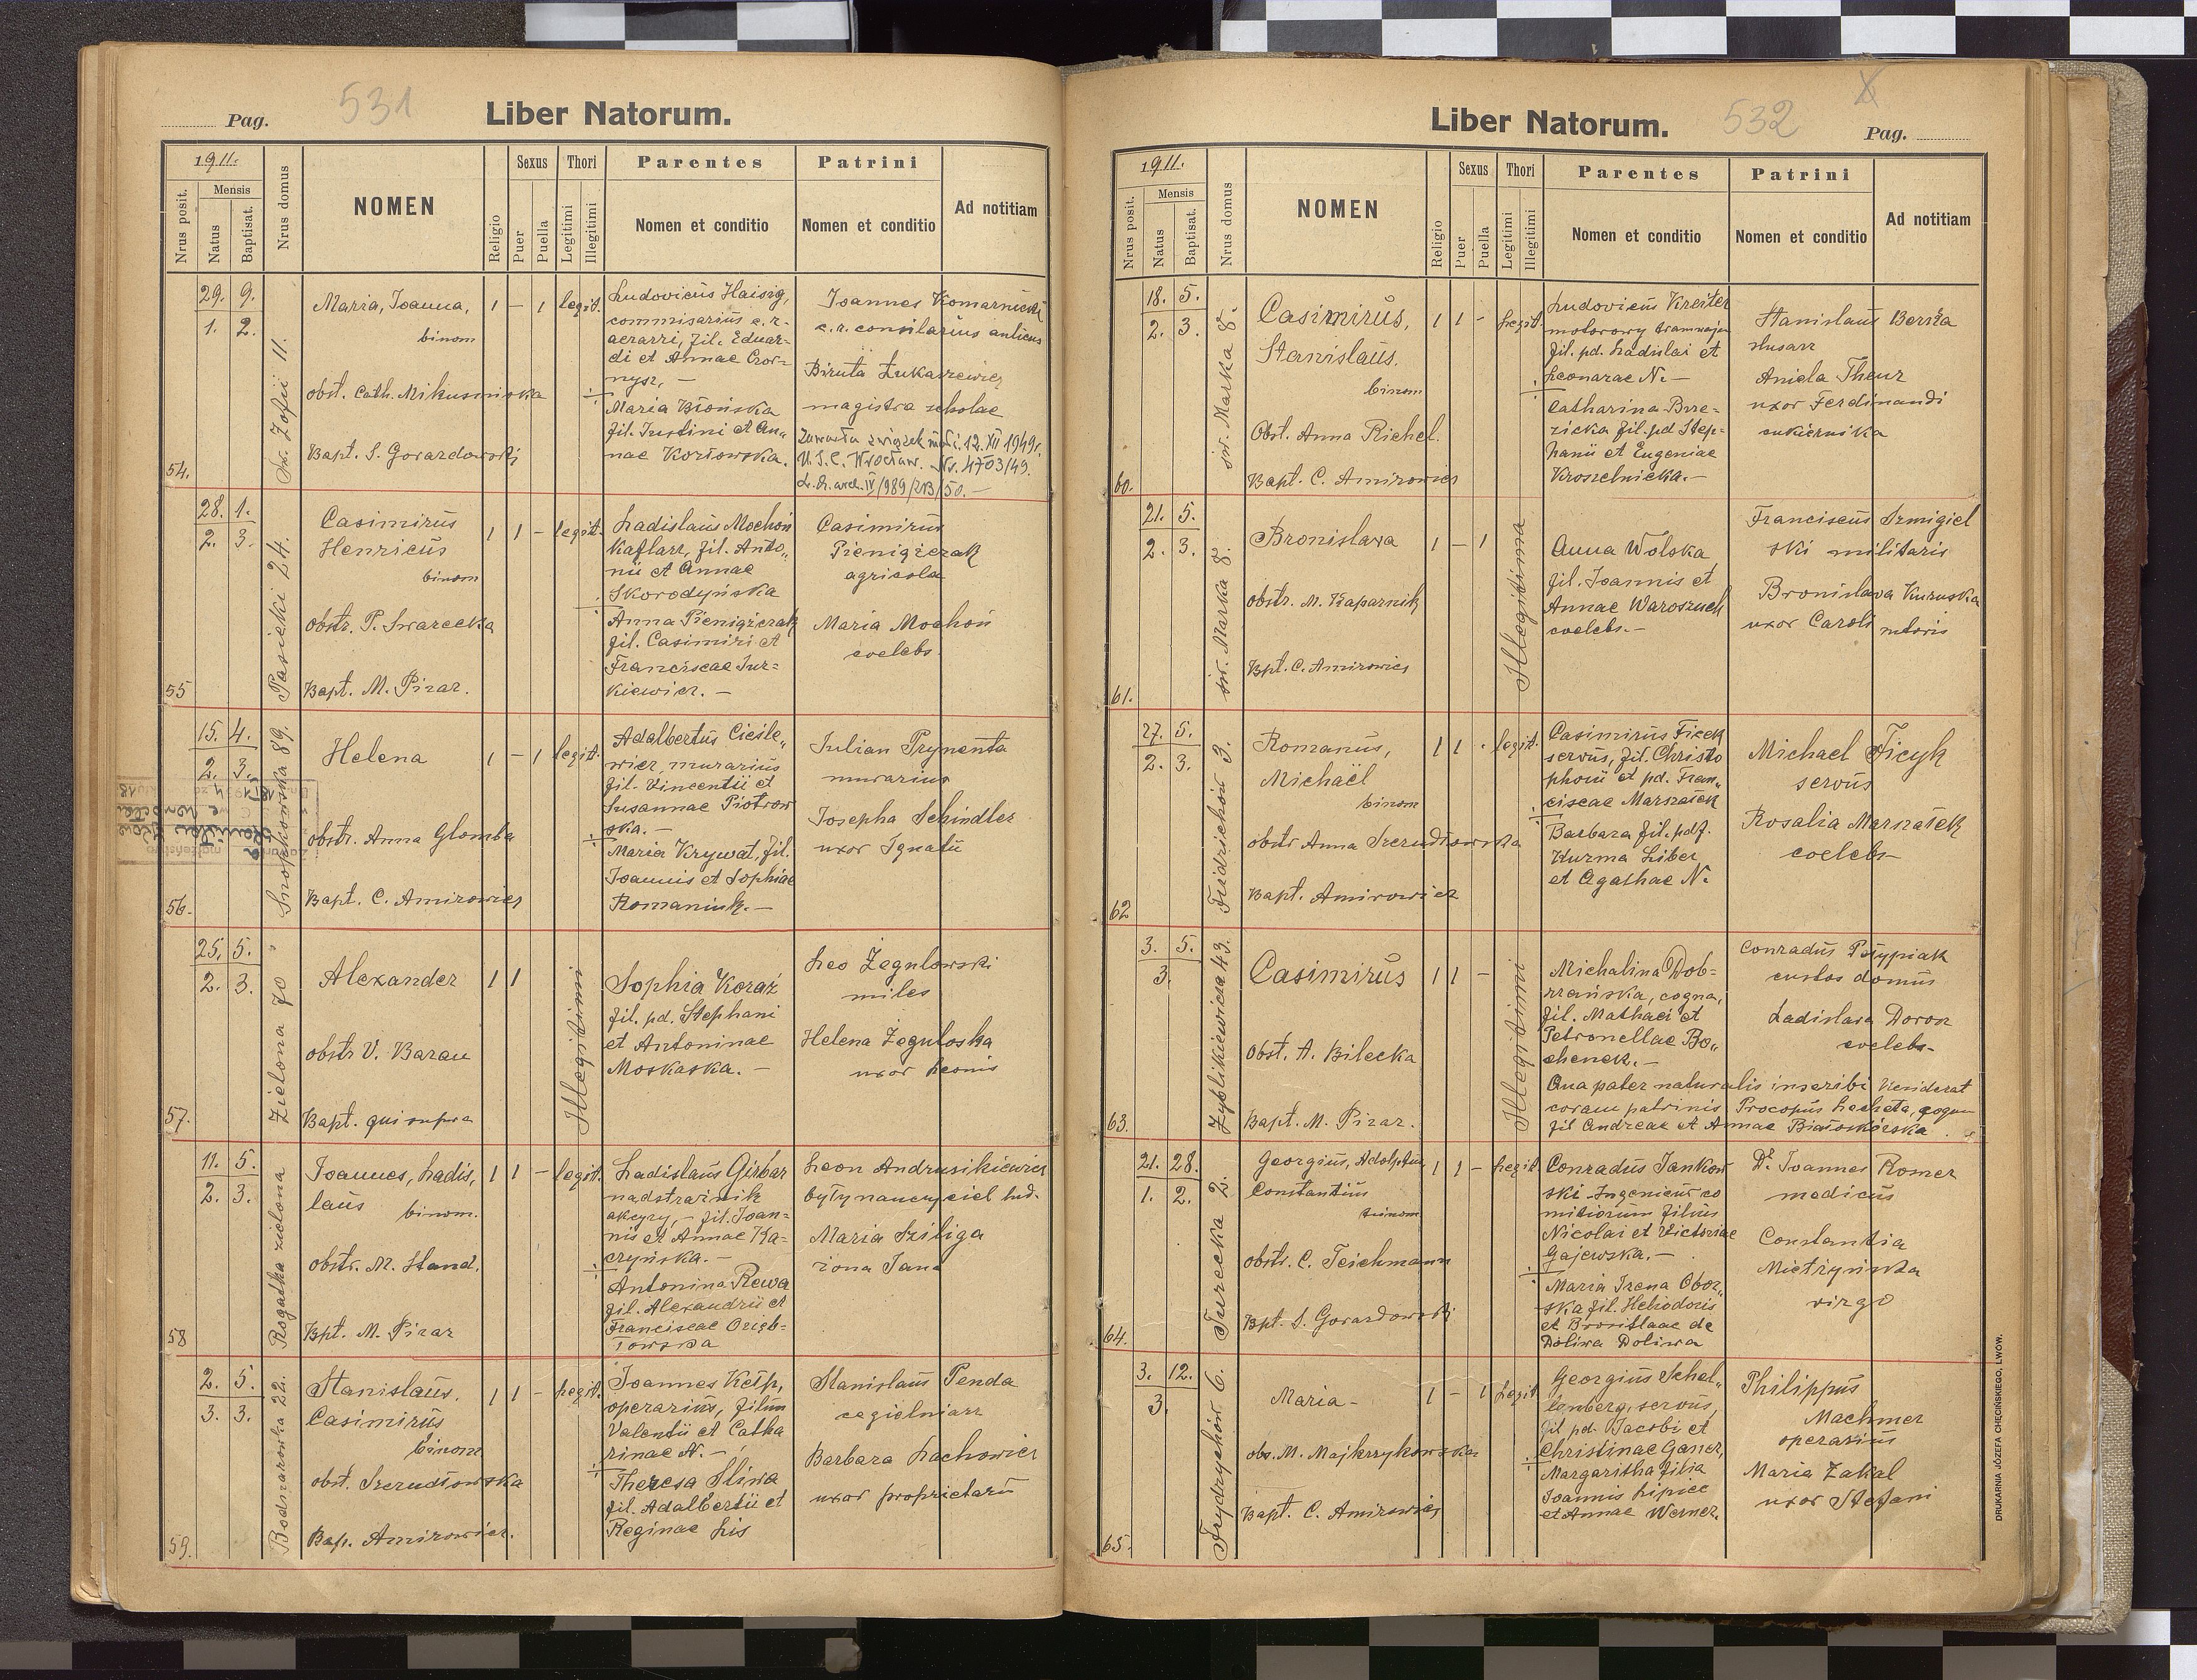 531
Pag.
Liber Natorum.
1911.
Nrus posit.
Mensis
Natus
Baptisat.
Nrus domus
NOMEN
Religio
Sexus
Puer
Puella
Thori
Legitimi
Illegitimi
Parentes
Nomen et conditio
Patrini
Nomen et conditio
Ad notitiam
54.
29. 9.
1. 2.
Św. Zofii 11.
Maria, Joanna,
binom
obst. Cath. Mikusinska
Bapt. S. Gorazdowski
1 – 1 legit.
Ludovicus Haisig,
commisarius c. r.
aerarri, fil. Eduar-
di et Annae Czor-
nysz, –
Maria Błońska
fil. Justini et An-
nae Kozłowska.
Joannes Komarnicki
c.r. consilarius aulicus
Biruta Łukaszewicz
magistra scholae
Zawarła związek małż. 12. XII 1949r.
U.S.C. Wrocław. Nr. 4703/49.
55
28. 1.
2. 3.
Pasieki 24.
Casimirus
Henricus
binom
obstr. P. Swarecka
Bapt. M. Pizar.
1 1 – legit.
Ladislaus Mochoń
Kaflarz, fil. Anto-
nii et Annae
Skorodyńska
Anna Pieniążczak
fil. Casimiri et
Franciscae Jur-
kiewicz. –
Casimirus
Pieniążczak
agricola
Maria Mochoń
coelebs
56.
15. 4.
2. 3.
Snopkowska 89.
Helena
obstr. Anna Glomba
Bapt. C. Amirowicz
1 – 1 legit.
Adalbertus Cieśle-
wicz, murarius
fil. Vincentii et
Susannae Piotrow
ska. –
Maria Krywat, fil.
Joannis et Sophiae
Romaniuk. –
Julian Prymenta
murarius
Josepha Schindler
uxor Ignatii
57.
25. 5.
2. 3.
Zielona 70
Alexander
obstr V. Baran
Bapt. qui supra
1 1
Illegitimi
Sophia Koraź
fil. pd. Stephani
et Antoninae
Moskaska. –
Leo Żegulowski
miles
Helena Żeguloska
uxor Leonis
58
11. 5.
2. 3.
Rogatka zielona
Joannes, Ladis,
laus binom.
obstr. M. Stand.
Bpt. M. Pizar
1 1 – legit.
Ladislaus Girbar
nadstrażnik
akcyzy, – fil. Joan-
nis et Annae Ka-
czyńska. –
Antonina Rewa
fil. Alexandrii et
Franciscae Orzęb-
łowska
Leon Andrusikiewicz
były nauczyciel lud.
Maria Sziliga
żona Jana
59.
2. 5.
3. 3.
Bodnarowka 22.
Stanislaus,
Casimirus
binom
obst. Szerudłowska
Bap. Amirowicz.
1 1 – legit.
Joannes Kełp,
operarius, filius
Valentii et Catha
rinae N. –
Theresa Śliwa
fil. Adalbertii et
Reginae Lis
Stanislaus Penda
cegielniarz
Barbara Lachowicz
uxor proprietarii
Liber Natorum.
532
Pag.
1911.
Nrus posit.
Mensis
Natus
Baptisat.
Nrus domus
NOMEN
Religio
Sexus
Puer
Puella
Thori
Legitimi
Illegitimi
Parentes
Nomen et conditio
Patrini
Nomen et conditio
Ad notitiam
60.
18. 5.
2. 3.
św. Marka 8.
Casimirus,
Stanislaus.
binom
Obst. Anna Richel.
Bapt. C. Amirowicz
1 1 - legit.
Ludovicus Kreiter
motorowy tramwaju
fil. pd. Ladislai et
Leonarae N. –
Catharina Brze-
zicka fil. pd Step-
hanii et Eugeniae
Kroszelnicka. –
Stanislaus Berża
slusarz
Aniela Theur
uxor Ferdinandi
cukiernika
61.
21. 5.
2. 3.
św. Marka 8.
Bronislawa
obstr. M. Kaparnik
Bpt. C. Amirowicz
1 – 1
Illegitima
Anna Wolska
fil. Joannis et
Annae Waroszuch
coelebs. –
Franciscus Srmigiel
ski militaris
Bronislava Kuruska
uxor Caroli
62
27. 5.
2. 3.
Fridrichów 3.
Romanus,
Michaël
binom
obstr Anna Szerudłowska
Bapt. Amirowicz
1 1 - legit.
Casimirus Ficek
servus, fil. Christo
phorii et pd. Fran-
ciscae Marszałek
Barbara fil. pdf.
Kurma Liber
et Agathae N.
Michael Ficyk
servus
Rosalia Marszałek
coelebs
63.
3. 5.
3.
Zyblikiewicza 43.
Casimirus
Obst. A. Bilecka
Bapt. M. Pizar.
1 1 –
Illegitimi
Michalina Dob-
rzańska, cogna,
fil. Mathaei et
Petronellae Bo-
chenek. –
Conradus Patypiak
custos domus
Ladislava Doroz
coelebs –
Qua pater naturalis inscribi
coram patrinis Procopus Lecheta,
fil Andreae et Annae Białoskórska
64.
21. 28.
1. 2.
Turecka 2.
Georgius, Adolphus
Constantius
trinom
obstr. C. Teichmann
Bpt. S. Gorazdowski
1 1 – legit
Conradus Jankow
ski – Ingenieur co
mitiorum filius
Nicolai et Victoriae
Gajewska. –
Maria Irena Obor-
ska fil. Heliodoris
et Bronislaae de
Doliwa Doliwa
Dr. Joannes Romer
medicus
Constantia
Mietzyńska
virgo
65.
3. 12.
3.
Frydrychów 6.
Maria –
obs. M. Majkrzykowska
Bapt. C. Amirowicz
1 – 1 Legit
Georgius Schel-
lenberg, servus,
fil pd. Jacobi et
Christinae Ganer,
Margaritha filia
Joannis Lipiec
et Annae Werner.
Philippus
Machmer
operarius
Maria Zakal
uxor Stefani
DRUKARNIA JÓZEFA CHĘCIŃSKIEGO, LWÓW.